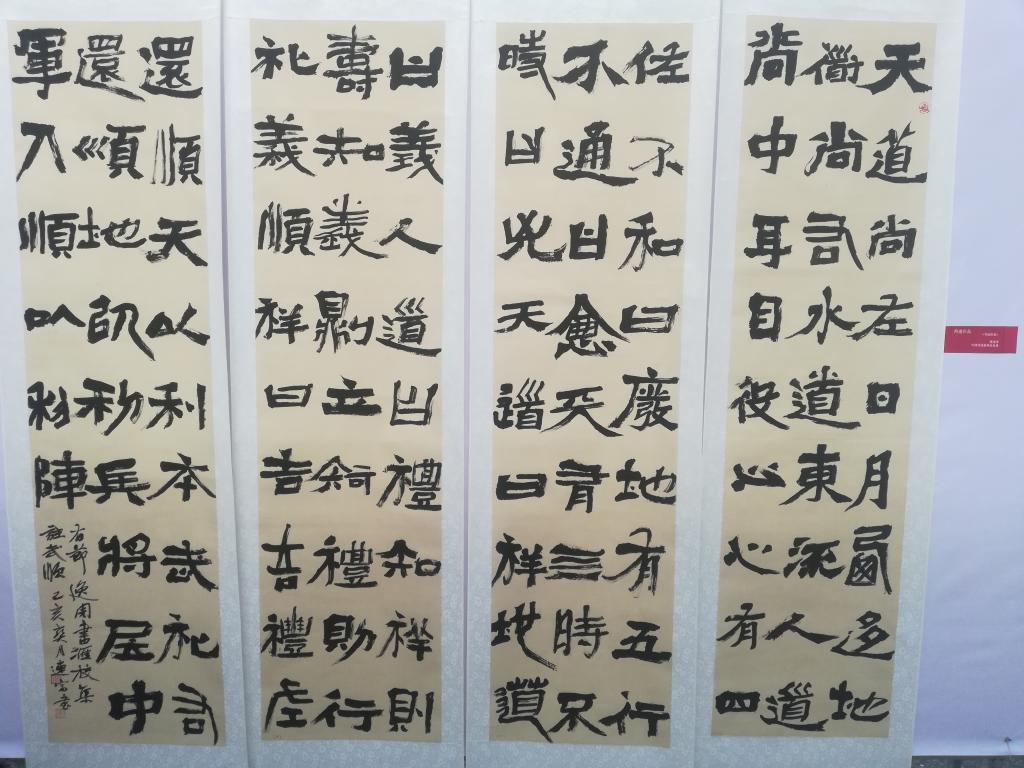 天道尚左日月西移地
道尚右水道東流人道
尚中耳目役心心有四
佐不和曰廢地有五行
不通曰惡天有四時不
時曰凶天道曰祥地道
曰義人道曰禮知祥則
壽知義則立知禮則行
禮義順祥曰吉吉禮左
還順天以利本武礼右
還順地以利兵將居中
軍人順以利陣
右節逸周書匯校集
註武順 己亥